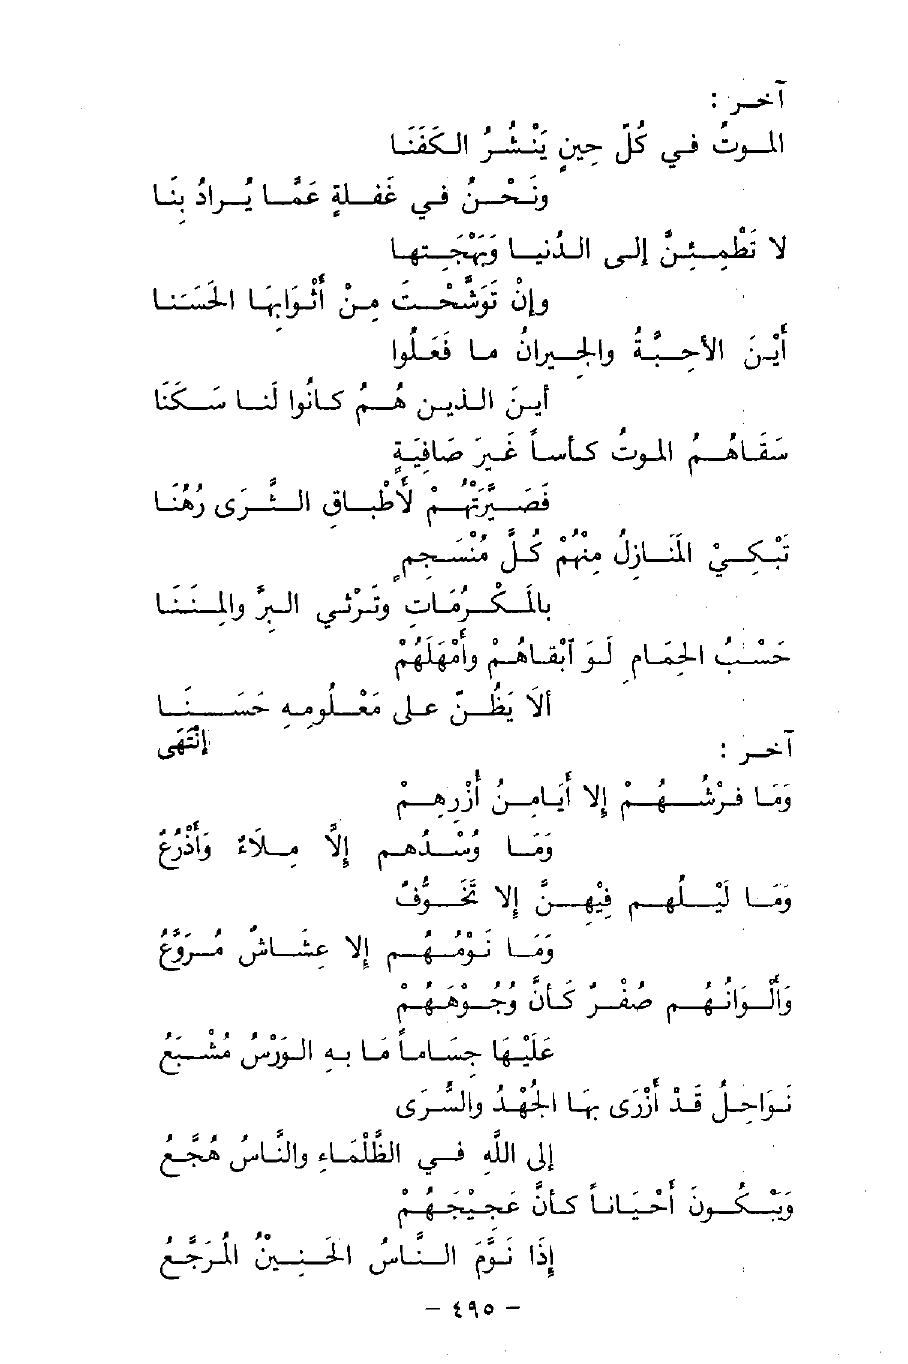 آخـر :
المـوتُ فـي كُلّ حِينٍ يَنْـشُـرُ الـكَفَنَـا
ونَـحْـنُ في غَفـلةٍ عَمَّـا يُـرادُ بِنَـا
لا تَطْمِـئِنَّ إلـى الـدُنيـا وَبَهْجَـتِهـا
وإنْ تَوَشَّحْـتَ مِـنْ أَثْـوَابِهَا الحَسَـنا
أَيْـنَ الأحِـبَّـةُ والجِـيرانُ مـا فَعَـلُوا
أيـنَ الـذيـن هُـمُ كـانُوا لَنـا سَـكَنَا
سَقَـاهُـمُ المـوتُ كـاسـاً غَـيرَ صَافِيَةٍ
فَصَـيَّرَتْهُـمْ لأَطْبـاقِ الـثَّـرَى رُهُنَـا
تَبْـكِـيْ المَنَـازِلُ مِنْهُمْ كُـلَّ مُنْسَـجِمٍ
بالمَـكْـرُمَـاتِ وتَـرْثـي الـبِرَّ والمِـنَـنَـا
حَسْـبُ الحِمَـامِ لَـوَ آبْقـاهُـمْ وأَمْهَلَهُمْ
ألاَ يَظُـنّ عـلى مَعْـلُـومِـهِ حَسَـنَـا
إنْتَهَى
آخـر :
وَمَـا فـرْشُـهُـمْ إلا أَيَـامِـنُ أُزْرِهِـمْ
وَمَـا وُسْـدُهـم إلَّا مِـلاَءٌ وَأَذْرُعُ
وَمَـا لَيْـلُهـم فِيْهِـنَّ إلا تَخَـوُّفٌ
وَمَـا نَـوْمُـهُـم إلا عِشَـاشٌ مُـرَوَّعُ
وَأَلْـوَانُـهُـم صُفْـرٌ كَـأنَّ وُجُـوْهَـهُـمْ
عَلَيْـهَا جِسَـاماً مَا بـهِ الـوَرْسُ مُشْـبَعُ
نَـوَاحِلُ قَدْ أَزْرَى بِهَا الجُهْدُ والسُّـرَى
إلى اللهِ فـي الظَّلْمَاءِ والنَّاسُ هُجَّـعُ
وَيَبْـكُـونَ أَحْيَـانـاً كـأنَّ عَجِـيْجَـهُـمْ
إذَا نَـوَّمَ النَّـاسُ الحَـنِـيْنُ المُرَجَّـعُ
- ٤٩٥ -